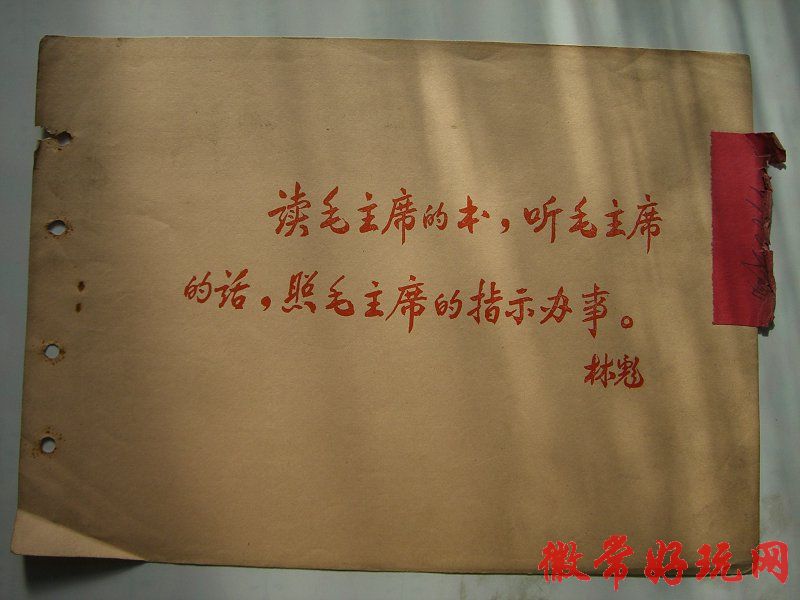 读毛主席的书，听毛主席
的话，照毛主席的指示办事。
林彪
徽常好玩网